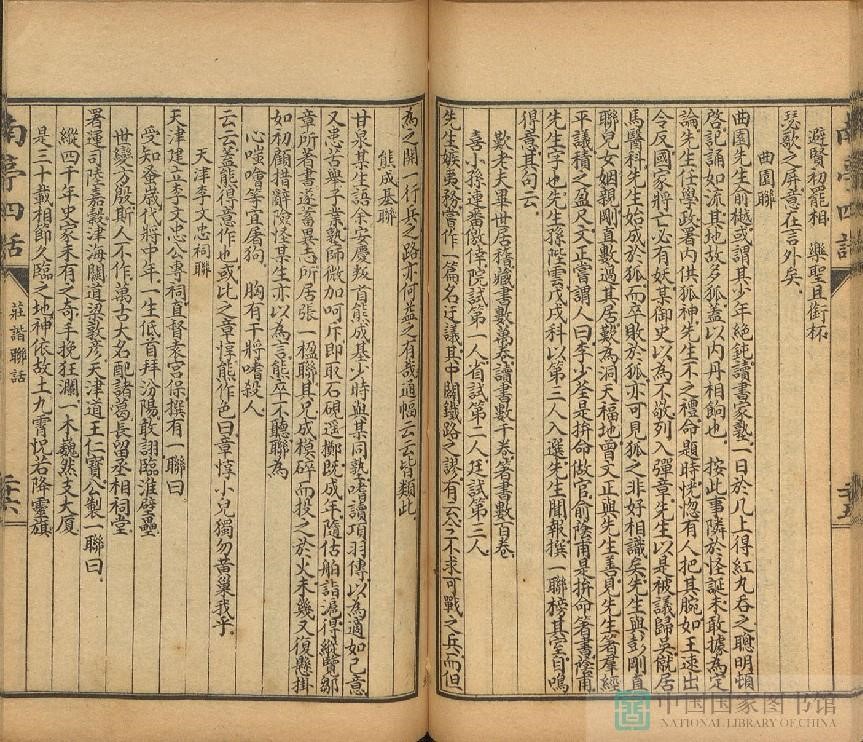 避賢初罷相　樂聖且銜杯
瑟歌之屏意在言外矣
曲園聯
曲園先生俞樾或謂其少年絕鈍讀書家塾一日於几上得紅丸吞之聰明頓
啓記誦如流其地故多狐蓋以內丹相餉也　按此事隣於怪誕未敢據為定
論先生任學政署內供狐神先生不之禮命題時恍惚有人把其腕如王速出
今反國家將亡必有妖某御史以為不敬列入彈章先生以是被議歸吳僦居
馬醫科先生始成於狐而卒敗於狐亦可見狐之非好相識矣先生與彭剛直
聯兒女姻親剛直數過其居歎為洞天福地曾文正與先生善見先生著羣經
平議積之盈尺文正嘗謂人曰李少荃是拚命做官俞蔭甫是拚命著書蔭甫
先生字也先生孫陛雲戊戌科以第三人入選先生聞報撰一聯榜其室自鳴
得意其句云
歎老夫畢世居稽藏書數萬卷讀書數千卷著書數百卷
喜小孫連番徼倖院試第一人省試第二人廷試第三人
先生嫉夷務嘗作一篇名迂議其中闢鐵路之謬有云今不求可戰之兵而但
為之開一行兵之路亦何益之有哉通幅云云皆類此
熊成基聯
甘泉某生語余安慶叛首熊成基少時與某同塾嗜讀項羽傳以為適如己意
又患古舉子業塾師微加呵斥即取石硯遥擲既成年隨估舶詣滬得縱覽鄒
章所著書遂蓄異志所居張一楹聯其兄成模碎而投之於火未幾又復懸掛
如初顧措辭險怪某生亦以為言熊卒不聽聯為
心嗤噲等宜屠狗　胸有干將嗜殺人
云云蓋熊得意作也或比之章惇熊作色曰章惇小兒獨勿黃巢我乎
天津李文忠祠聯
天津建立李文忠公專祠直督袁宮保撰有一聯曰
受知蚤歲代將中年一生低首拜汾陽敢詡臨淮壁壘
世變方殷斯人不作萬古大名配諸葛長留丞相祠堂
署運司陸嘉穀津海關道梁敦彥天津道王仁寶公製一聯曰
縱四千年史家未有之奇手挽狂瀾一木巍然支大厦
是三十載相節久臨之地神依故土九霄怳若降靈旗
南亭四話
莊諧聯話
二十六
南亭四話
二十五
中国国家图书馆
NATIONAL LIBRARY OF CHINA